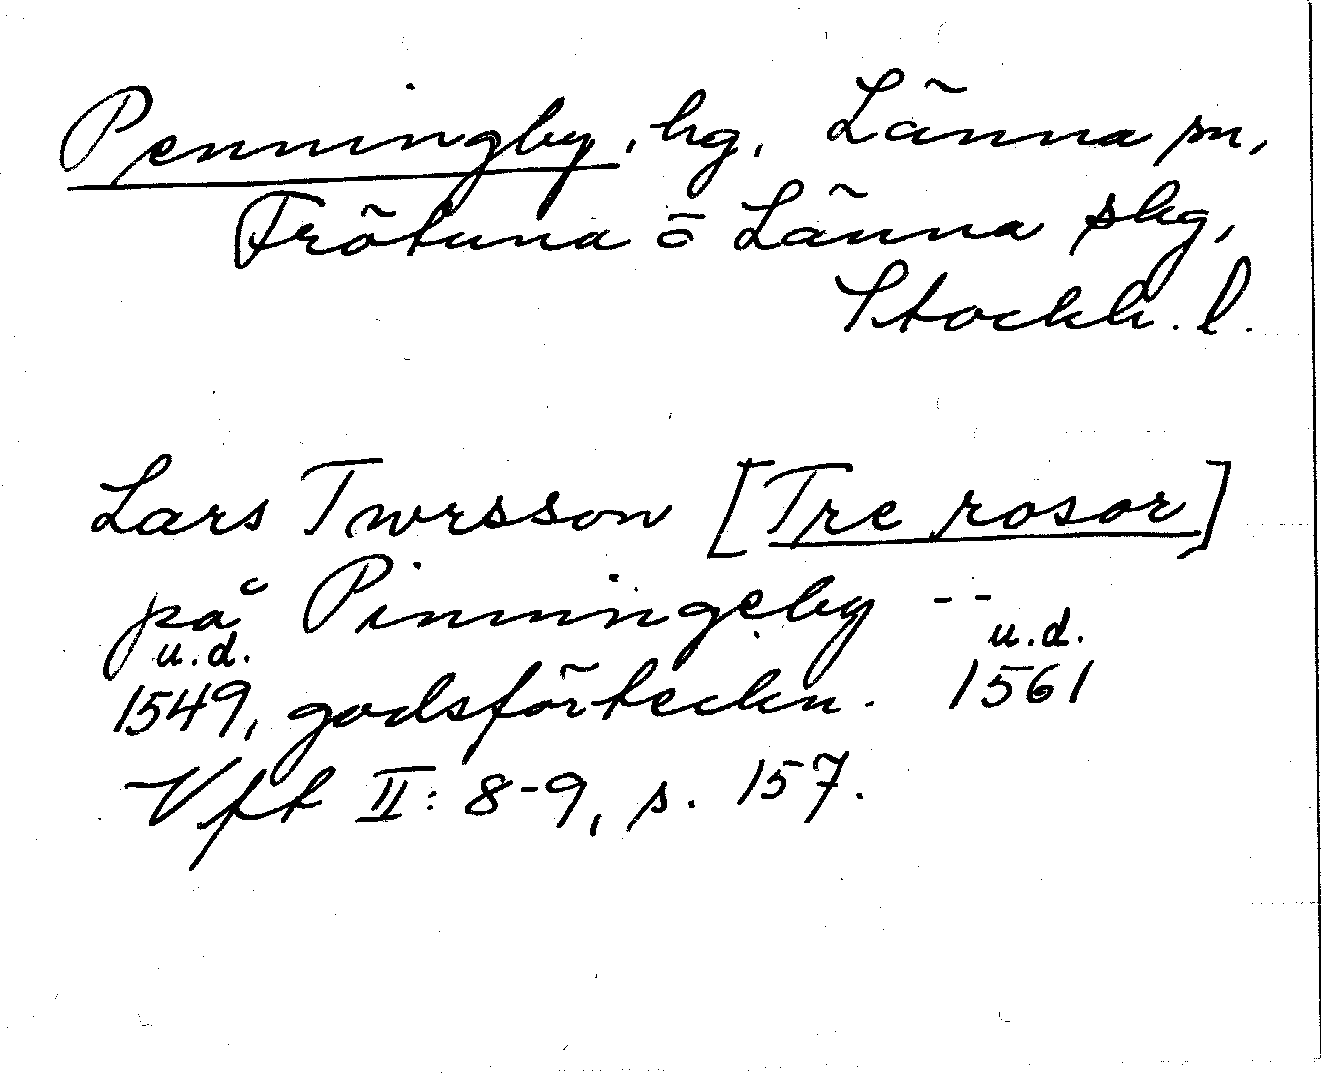 Penningby, hg, Länna sn,
Frötuna o Länna skg,
Stockh. l.
Lars Twrsson [Tre rosor]
på Pinningeby --
u.d. u.d.
1549, godsförteckn. 1561
Vft II: 8-9, s. 157.